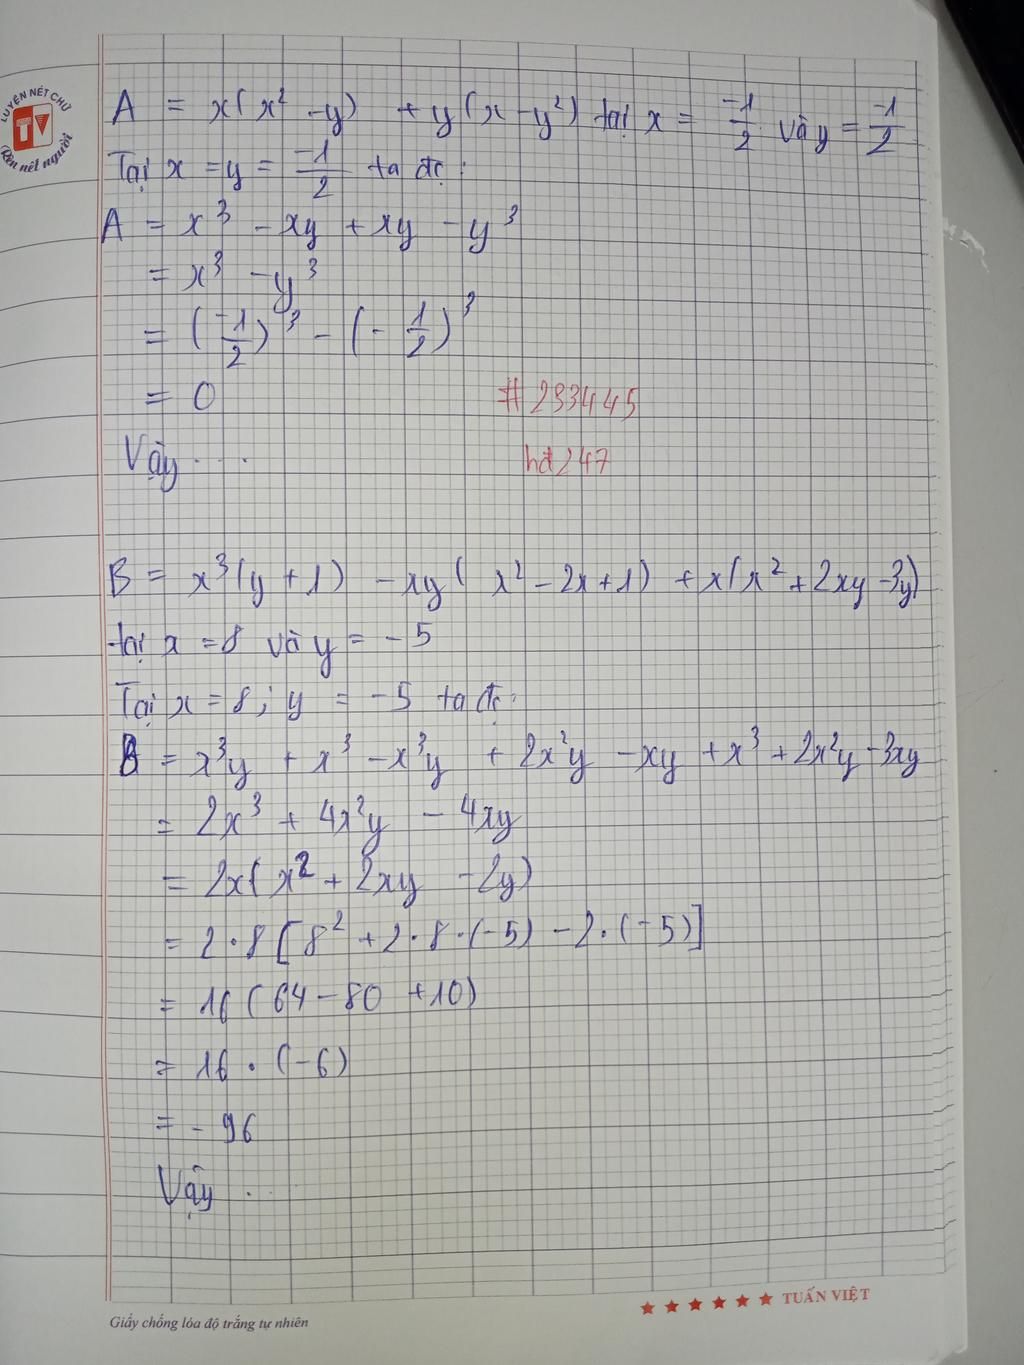 LUYỆN NÉT CHỮ
TV
Rèn nết người
A = x(x² - y) + y(x - y²) tại x = -1/2 và y = -1/2
Tại x = y = -1/2 ta đc:
A = x³ - xy + xy - y³
= x³ - y³
= (-1/2)³ - (-1/2)³
= 0
#283445
Vậy ....
hđ247
B = x³(y + 1) - xy(x² - 2x + 1) + x(x² + 2xy - 3y)
tại x = 8 và y = -5
Tại x = 8; y = -5 ta đc:
B = x³y + x³ - x³y + 2x²y - xy + x³ + 2x²y - 3xy
= 2x³ + 4x²y - 4xy
= 2x(x² + 2xy - 2y)
= 2·8[8² + 2·8·(-5) - 2·(-5)]
= 16(64 - 80 + 10)
= 16·(-6)
= -96
Vậy ..
★★★★★★ TUẤN VIỆT
Giấy chống lóa độ trắng tự nhiên